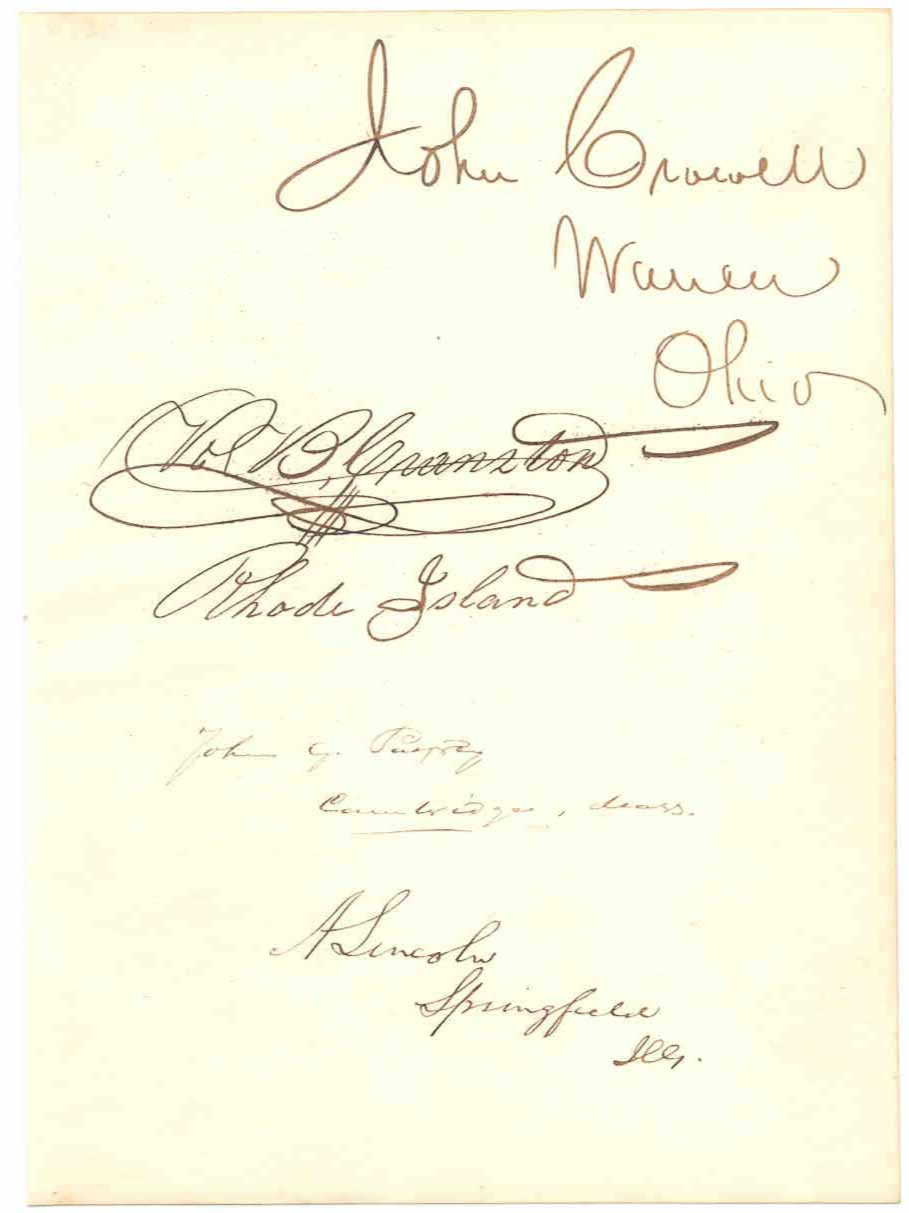 John Crowell
Warren
Ohio
Rob B, Cranston
Rhode Island
John G. Palfrey
Cambridge, Mass.
A Lincoln
Springfield
Ills.